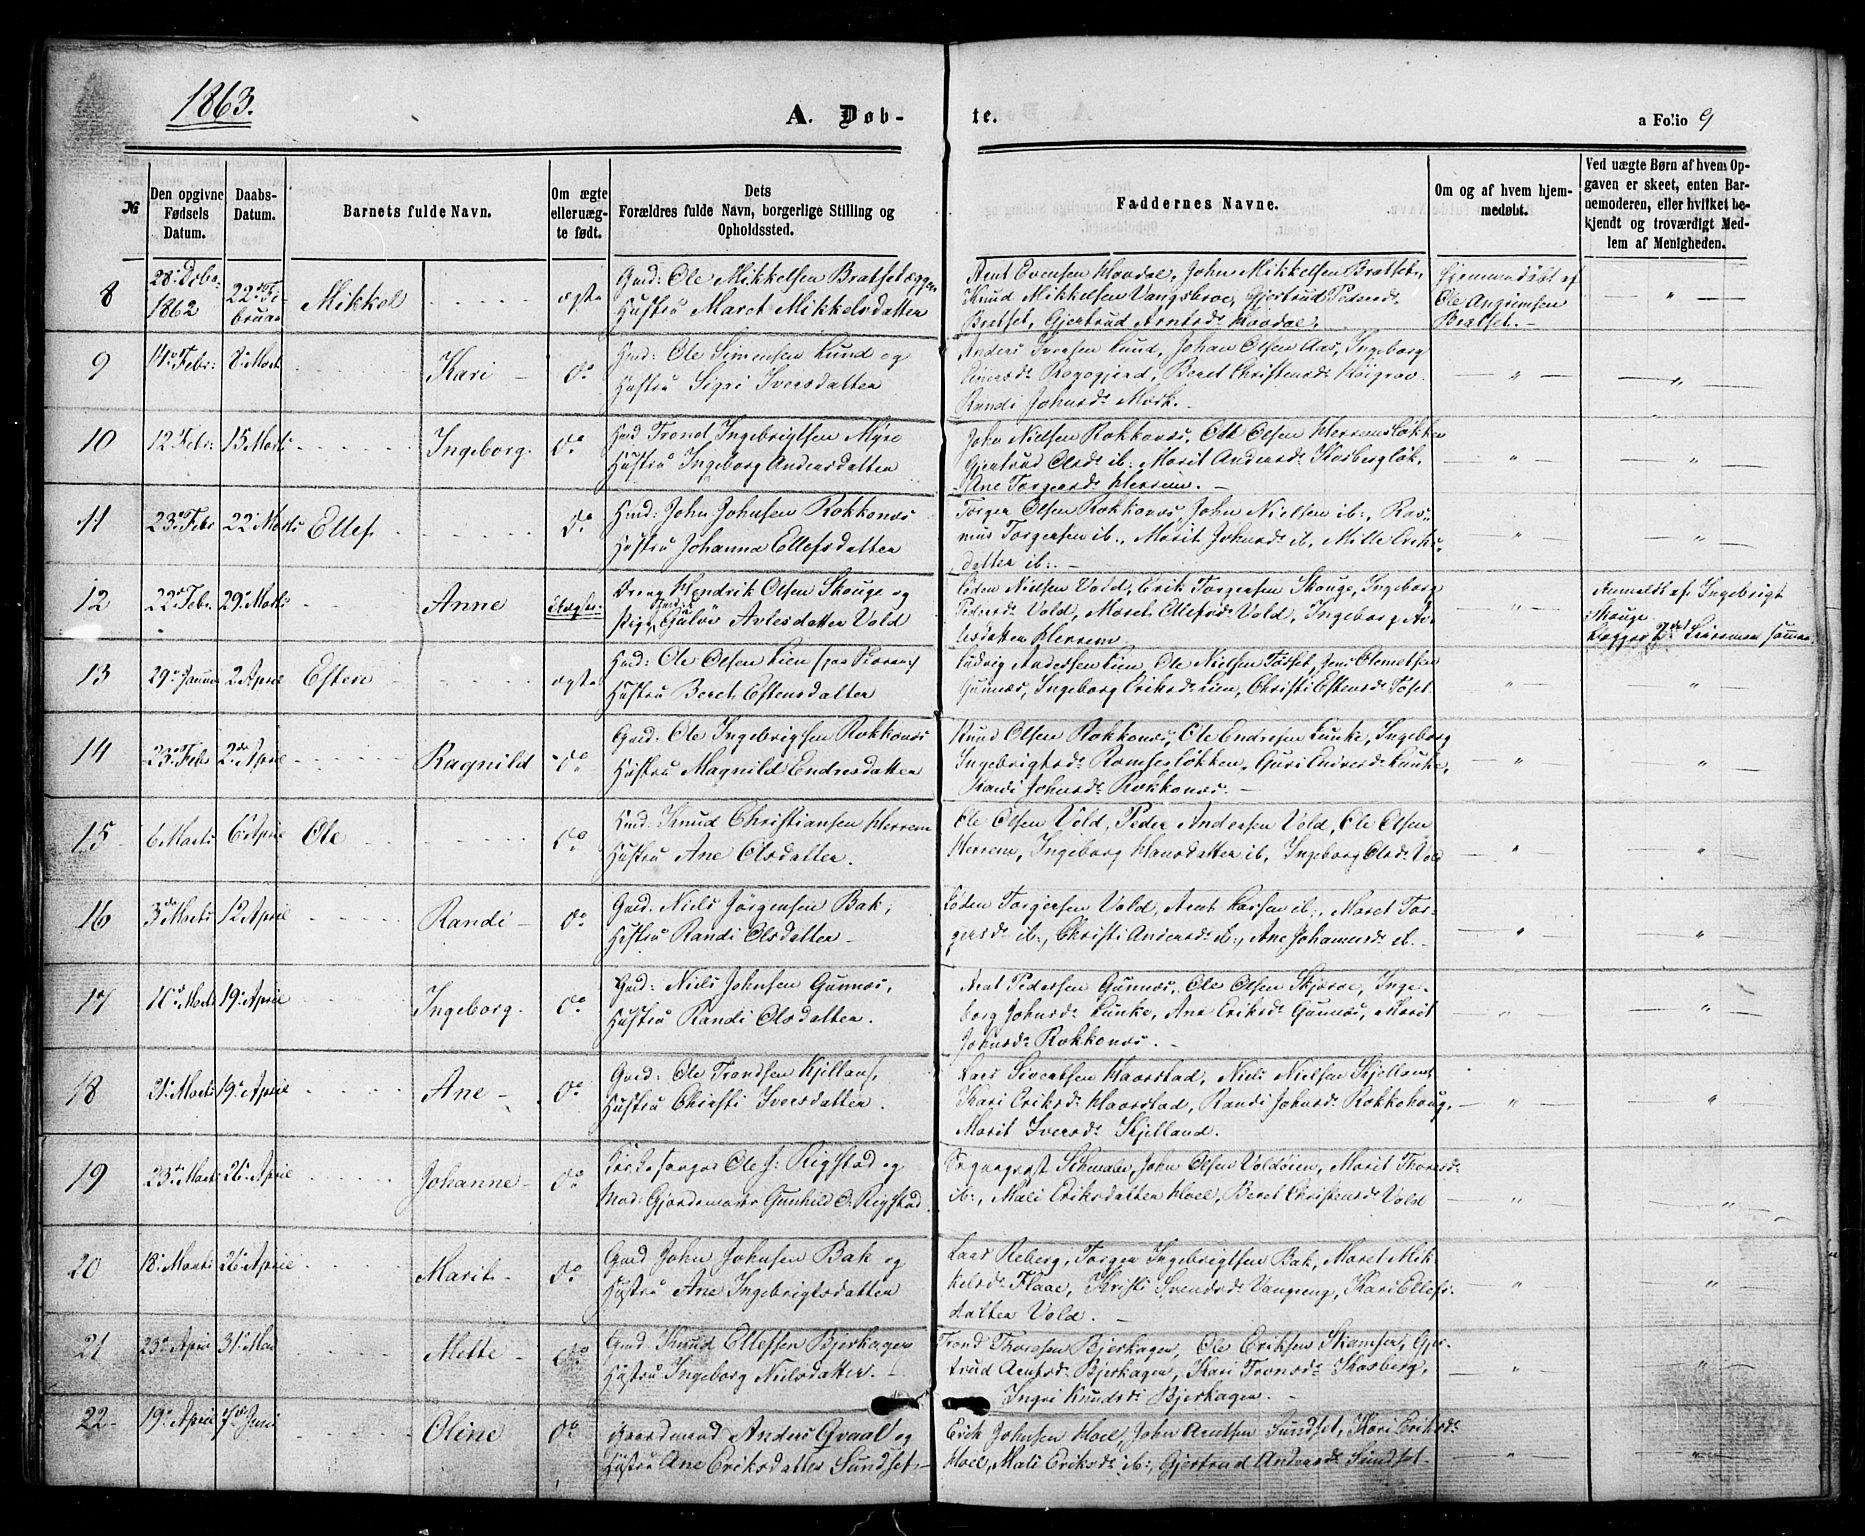 1863.
A. Døb-
te.
a Folio 9
№
Den opgivne
Fødsels
Datum.
Daabs-
Datum.
Barnets fulde Navn.
Om ægte
eller uæg-
te født.
Dets
Forældres fulde Navn, borgerlige Stilling og
Opholdssted.
Faddernes Navne.
Om og af hvem hjem-
medøbt.
Ved uægte Børn af hvem Op-
gaven er skeet, enten Bar-
nemoderen, eller hvilket be-
kjendt og troværdigt Med-
lem af Menigheden.
8
28. Decbr
1862
22de Fe-
bruar
Mikkel
ægte
Gmd: Ole Mikkelsen Bratsetæggen
Hustru Maret Mikkelsdatter
Arnt Evensen Hovdal, John Mikkelsen Bratset,
Knud Mikkelsen Vangsbroe, Gjertrud Pedersd:
Bratset, Gjertrud Arntsd: Hovdal.
Hjemmedøbt af
Ole Angrimsen
Bratset.
9
14. Febr:
8. Marts
Kari
do
Hmd: Ole Simensen Lund og
Hustru Sigri Iversdatter
Anders Iversen Lund, Johan Olsen Aas, Ingeborg
Beret Christensd:
Randi Johnsd: Mærk.
10
12 Febr:
15 Marts
Ingeborg.
do
Hmd. Trond Ingebrigtsen Myre
Hustru Ingeborg Andersdatter
John Nielsen Rokkones, Ole Olsen Herremsløkken
Gjertrud Olsd: ib:, Marit Andersd: Skarbergløk,
Ane Torgersd: Herrem.
11
23de Febr
22 Marts
Ellef
do
Hmd: John Johnsen Rokkones
Hustru Johanna Ellefsdatter
Torger Olsen Rokkones, John Nielsen ib:, Ras-
mus Torgersen ib:, Marit Johnsd: ib, Mille Eriks-
datter ib:
12
22de Febr
29. Marts
Anne
Uægte:
Dreng Hendrik Olsen Skouge og
Pige Gjuløv Avlesdatter Vold
Loden Nielsen Vold, Erik Torgersen Skouge, Ingeborg
Pedersd: Vold, Maret Ellefsd: Vold, Ingeborg Av-
lesdatter Herrem
Anmeldt af Ingebrigt
Skouge
13
29. Januar
2 April
Esten
ægte
Hmd: Ole Olsen Lien
Hustru Beret Estensdatter
Ludvig Andersen Lien, Ole Nielsen Tøfset, Jens Clemetsen
Gunnes, Ingeborg Eriksd: Lien, Christi Estensd: Tøfset.
14
23de Febr
2den April
Ragnild
do
Gmd: Ole Ingebrigtsen Rokkones
Hustru Magnild Endresdatter
Knud Olsen Rokkones, Ole Endresen Lunke, Ingeborg
Ingebrigtsd: Ramsegløkken, Guri Endresd: Lunke,
Randi Johnsd: Rokkones.
15
6 Marts
6 April
Ole
do
Hmd: Knud Christiansen Herrem
Hustru Ane Olsdatter.
Ole Olsen Vold, Peder Andersen Vold, Ole Olsen
Herrem, Ingeborg Hansdatter ib, Ingeborg Olsd: Vold
16
3de Marts
12 April
Randi
do
Gmd: Niels Jørgensen Bak,
Hustru Randi Olsdatter
Loden Torgersen Vold, Arnt Larsen ib:, Maret Tor-
gersd: ib:, Christi Andersd: ib:, Ane Johannesd: ib.
17
19. April
Ingeborg.
do
Gmd: Niels Johnsen Gunnes,
Hustru Randi Olsdatter.
Arnt Pedersen Gunnes, Ole Olsen Skjæroe, Inge-
borg Johnsd: Lunke, Ane Eriksd: Gunnes, Marit
Johnsd: Rokkones.
18
21. Marts
19. April
Ane
do
Gmd: Ole Trondsen Kjelland,
Hustru Christi Iversdatter.
Lars Sivertsen Haarstad, Niels Nielsen Skjelland,
Kari Eriksd: Haarstad, Randi Johnsd: Rokkehoug,
Marit Iversd: Skjelland.
19
23. Marts
26. April
Johanne
do
Kirkesanger Ole J: Rigstad og
Mad: Gjordemoder Gunhild O. Rigstad.
Sogneprest Schmaler, John Olsen Voldøien, Marit Thoresd:
ib:, Mali Eriksdatter Hoel, Beret Christensd: Vold
20
18. Marts
26. April
Marit
do
Gmd John Johnsen Bak og
Hustru Ane Ingebrigtsdatter
Lars Reberg, Torger Ingebrigtsen Bak, Maret Mik-
kelsd: Flaae, Kristi Svendsd: Vangeng, Kari Ellefs-
datter Vold.
21
23. April
31. Mai
Mette
do
Gmd. Knud Ellefsen Bjerkagen
Hustru Ingeborg Nielsdatter.
Trond Thoresen Bjerkagen, Ole Eriksen Skamfer, Gjer-
trud Arntsd: Bjerkagen, Kari Tronsd: Skarberg,
Ingri Knudsd: Bjerkagen.
22
19. April
7de Juni
Oline
do
Gaardmand Anders Qvaal og
Hustru Ane Eriksdatter Sundset
Erik Johnsen Hoel, John Arntsen Sundset, Kari Eriksd:
Hoel, Mali Eriksd: ib:, Gjertrud Andersd: Sundset